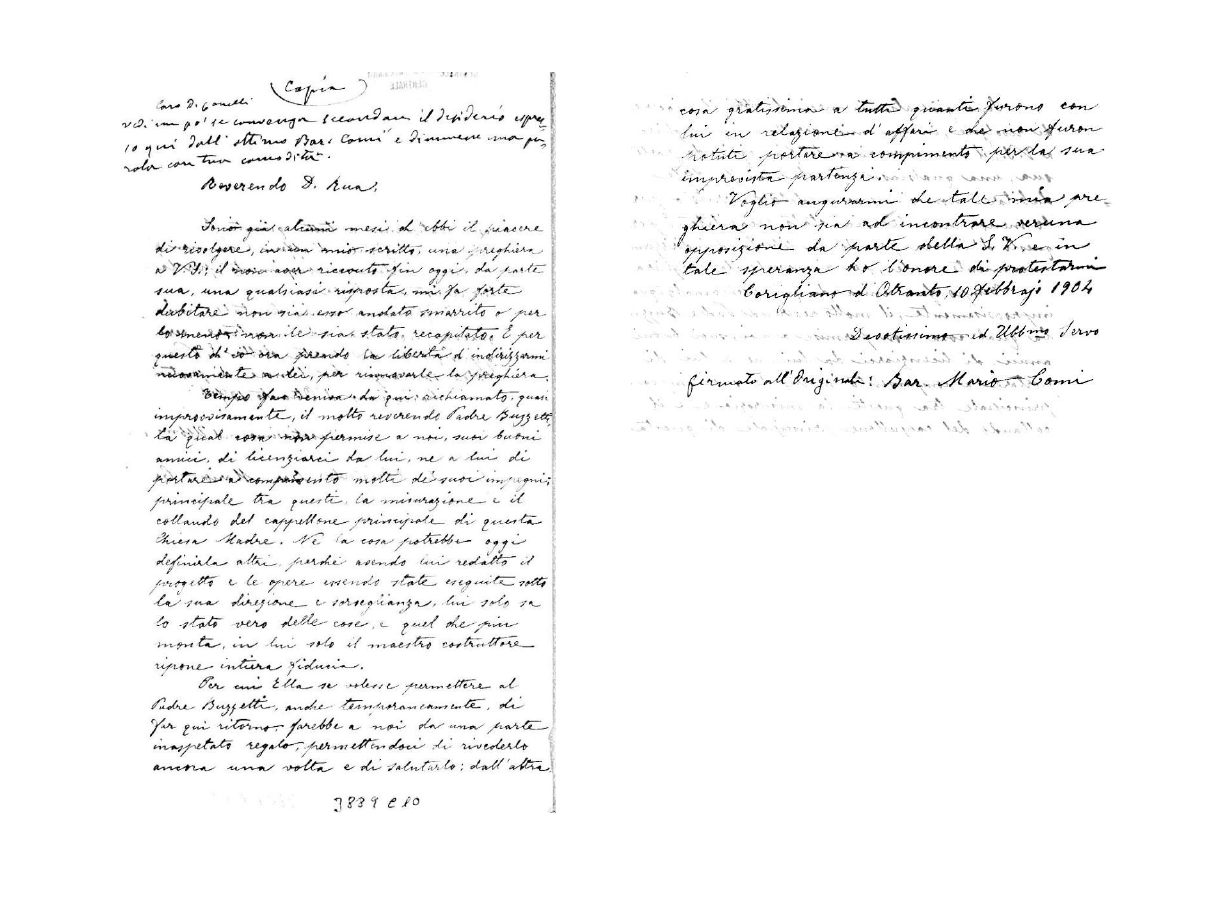 Copia
Caro D. Gonelli
vedi un po' se convenga secondare il desiderio espres-
so qui dall'ottimo Bar. Comi e dimmene una pa-
rola con tua comodità.
Reverendo D. Rua,
Sono già alcuni mesi ch'ebbi il piacere
di rivolgere, in un mio scritto, una preghiera
a V.S.; il non aver ricevuto fin oggi, da parte
sua, una qualsiasi risposta, mi fa forte
dubitare non sia esso andato smarrito o per
lo meno non le sia stato recapitato. È per
questo ch'io ora prendo la libertà d'indirizzarmi
nuovamente a Lei, per rinnovarle la preghiera.
Tempo fa veniva da qui richiamato, quasi
improvvisamente, il molto reverendo Padre Buzzetti,
la qual cosa non permise a noi, suoi buoni
amici, di licenziarci da lui, ne a lui di
portare a compimento molti de' suoi impegni;
principale tra questi, la misurazione e il
collaudo del cappellone principale di questa
Chiesa Madre. Nè la cosa potrebbe oggi
definirla altri, perchè avendo lui redatto il
progetto e le opere essendo state eseguite sotto
la sua direzione e sorveglianza, lui solo sa
lo stato vero delle cose, e quel che più
monta, in lui solo il maestro costruttore
ripone intiera fiducia.
Per cui Ella se volesse permettere al
Padre Buzzetti, anche temporaneamente, di
far qui ritorno, farebbe a noi da una parte
inaspetato regalo, permettendoci di rivederlo
ancora una volta e di salutarlo; dall'altra
3839 E 10
cosa gratissima a tutti quanti furono con
lui in relazione d'affari e che non furon
potuti portare a compimento per la sua
imprevista partenza.
Voglio augurarmi che tale mia pre-
ghiera non sia ad incontrare veruna
opposizione da parte della S. V. e in
tale speranza ho l'onore di protestarmi
Corigliano d'Otranto, 10 Febbrajo 1904
Devotissimo ed Ubbmo Servo
firmato all'Originale: Bar. Mario Comi